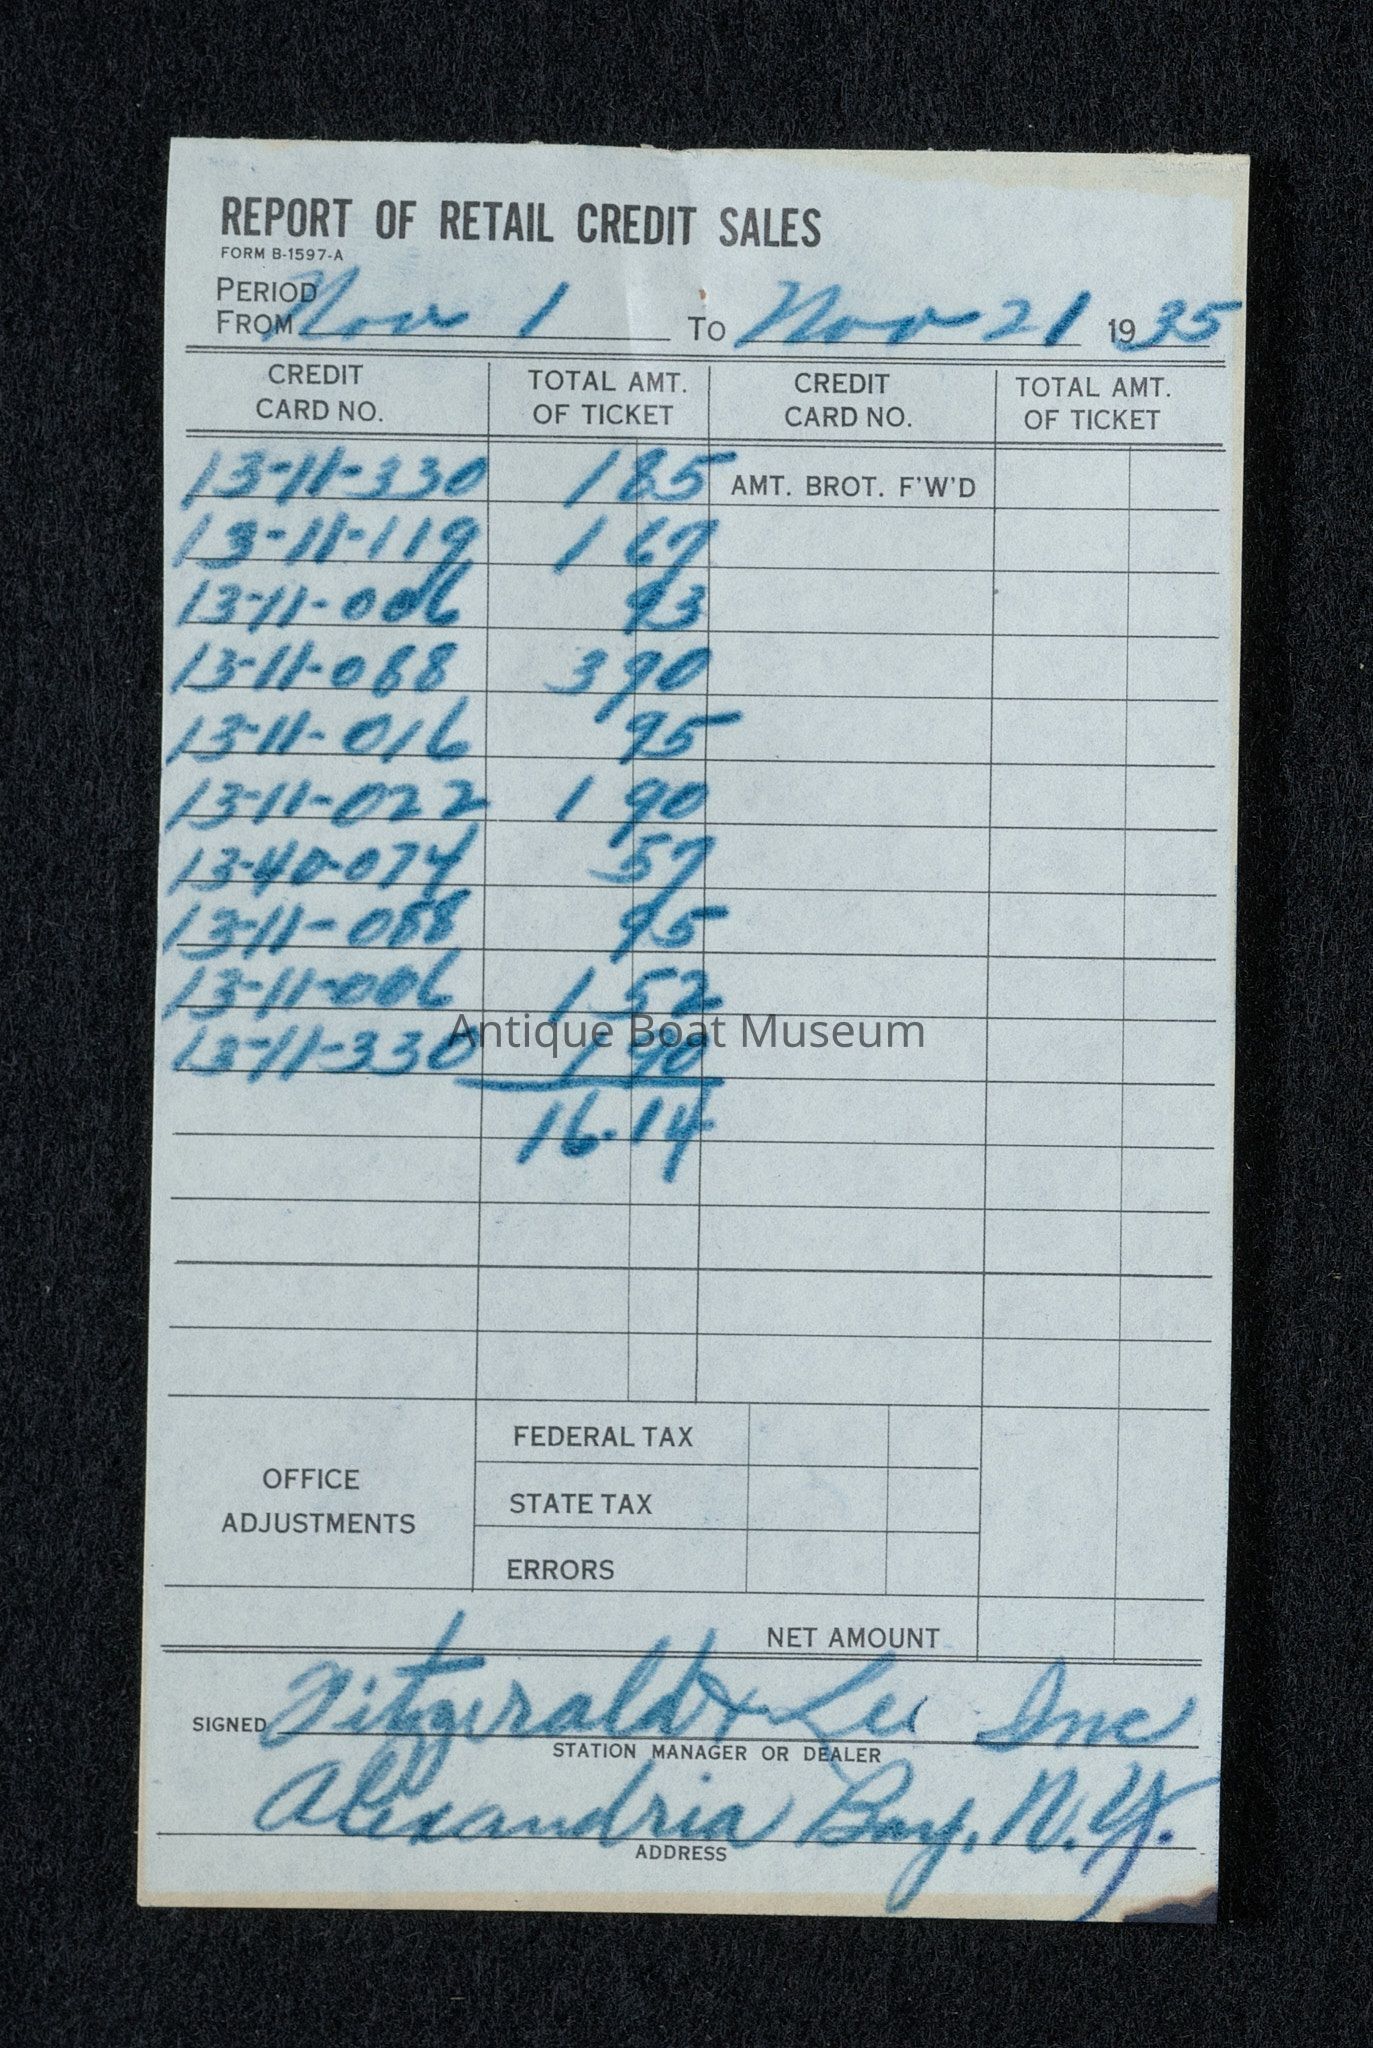 REPORT OF RETAIL CREDIT SALES
FORM B-1597-A
PERIOD
FROM Nov 1 TO Nov 21 1935
CREDIT CARD NO. TOTAL AMT. OF TICKET CREDIT CARD NO. TOTAL AMT. OF TICKET
13-11-330 1 85 AMT. BROT. F'W'D
13-11-119 1 67
13-11-006 93
13-11-088 3 90
13-11-016 95
13-11-022 1 90
13-40-074 57
13-11-088 95
13-11-006 1 52
Antique Boat Museum
13-11-330 1 90
16.14
FEDERAL TAX
OFFICE
ADJUSTMENTS
STATE TAX
ERRORS
NET AMOUNT
SIGNED Fitzgerald & Lee Inc
STATION MANAGER OR DEALER
Alexandria Bay, N.Y.
ADDRESS